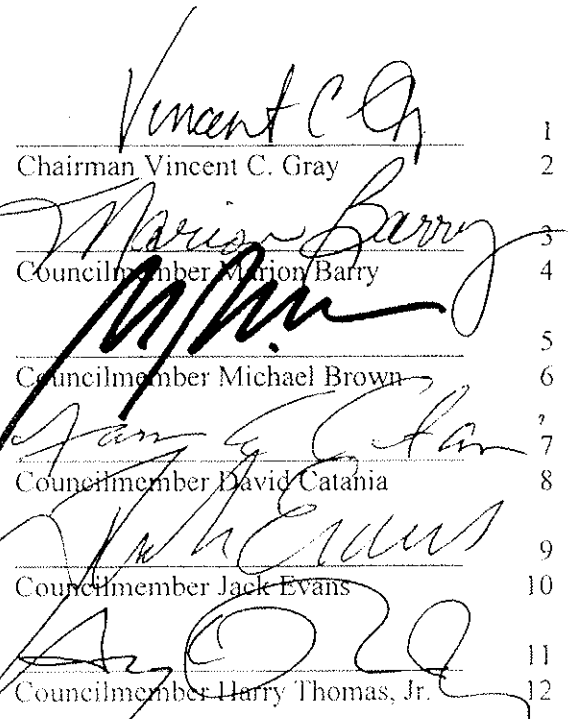 Vincent C Gray 1
Chairman Vincent C. Gray 2
Marion Barry 3
Councilmember Marion Barry 4
5
Councilmember Michael Brown 6
7
Councilmember David Catania 8
Jack Evans 9
Councilmember Jack Evans 10
11
Councilmember Harry Thomas, Jr. 12